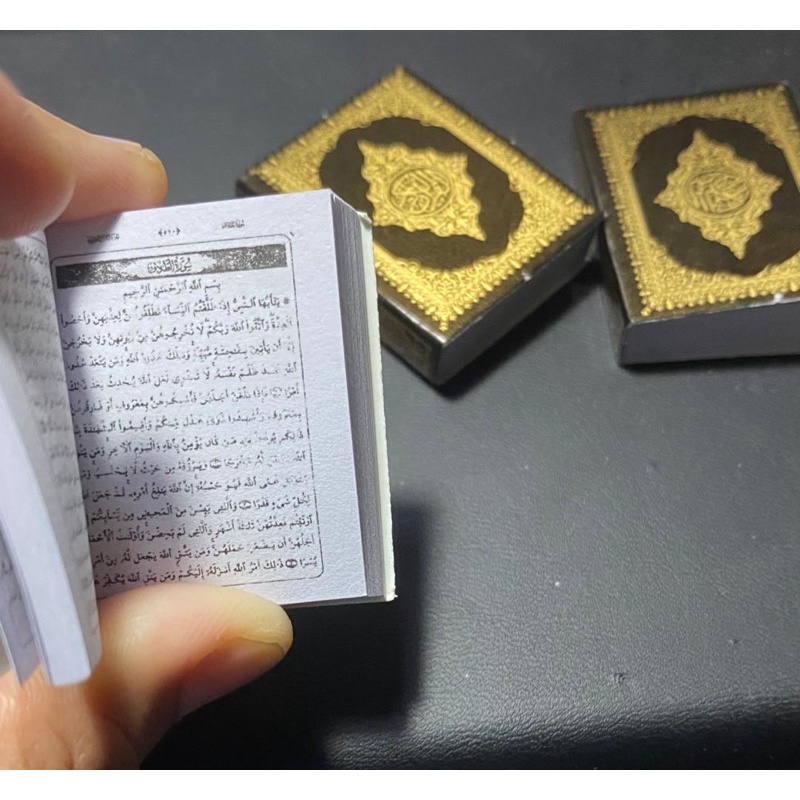 سُورَةُ الطَّلَاقِ
بِسْمِ اللَّهِ الرَّحْمَٰنِ الرَّحِيمِ
يَٰٓأَيُّهَا النَّبِيُّ إِذَا طَلَّقْتُمُ النِّسَآءَ فَطَلِّقُوهُنَّ لِعِدَّتِهِنَّ وَأَحْصُوا
الْعِدَّةَ وَاتَّقُوا اللَّهَ رَبَّكُمْ لَا تُخْرِجُوهُنَّ مِنْ بُيُوتِهِنَّ وَلَا يَخْرُجْنَ
إِلَّآ أَنْ يَأْتِينَ بِفَٰحِشَةٍ مُبَيِّنَةٍ وَتِلْكَ حُدُودُ اللَّهِ وَمَنْ يَتَعَدَّ حُدُودَ
اللَّهِ فَقَدْ ظَلَمَ نَفْسَهُ لَا تَدْرِي لَعَلَّ اللَّهَ يُحْدِثُ بَعْدَ ذَٰلِكَ
أَمْرًا ١ فَإِذَا بَلَغْنَ أَجَلَهُنَّ فَأَمْسِكُوهُنَّ بِمَعْرُوفٍ أَوْ فَارِقُوهُنَّ
بِمَعْرُوفٍ وَأَشْهِدُوا ذَوَيْ عَدْلٍ مِنْكُمْ وَأَقِيمُوا الشَّهَٰدَةَ
ذَٰلِكُمْ يُوعَظُ بِهِ مَنْ كَانَ يُؤْمِنُ بِاللَّهِ وَالْيَوْمِ الْآخِرِ وَمَنْ يَتَّقِ
اللَّهَ يَجْعَلْ لَهُ مَخْرَجًا ٢ وَيَرْزُقْهُ مِنْ حَيْثُ لَا يَحْتَسِبُ وَمَنْ
يَتَوَكَّلْ عَلَى اللَّهِ فَهُوَ حَسْبُهُ إِنَّ اللَّهَ بَٰلِغُ أَمْرِهِ قَدْ جَعَلَ اللَّهُ
لِكُلِّ شَيْءٍ قَدْرًا ٣ وَالَّٰٓئِي يَئِسْنَ مِنَ الْمَحِيضِ مِنْ نِسَآئِكُمْ إِنِ
ارْتَبْتُمْ فَعِدَّتُهُنَّ ثَلَٰثَةُ أَشْهُرٍ وَالَّٰٓئِي لَمْ يَحِضْنَ وَأُولَٰتُ الْأَحْمَالِ
أَجَلُهُنَّ أَنْ يَضَعْنَ حَمْلَهُنَّ وَمَنْ يَتَّقِ اللَّهَ يَجْعَلْ لَهُ مِنْ أَمْرِهِ
يُسْرًا ٤ ذَٰلِكَ أَمْرُ اللَّهِ أَنْزَلَهُٓ إِلَيْكُمْ وَمَنْ يَتَّقِ اللَّهَ يُكَفِّرْ